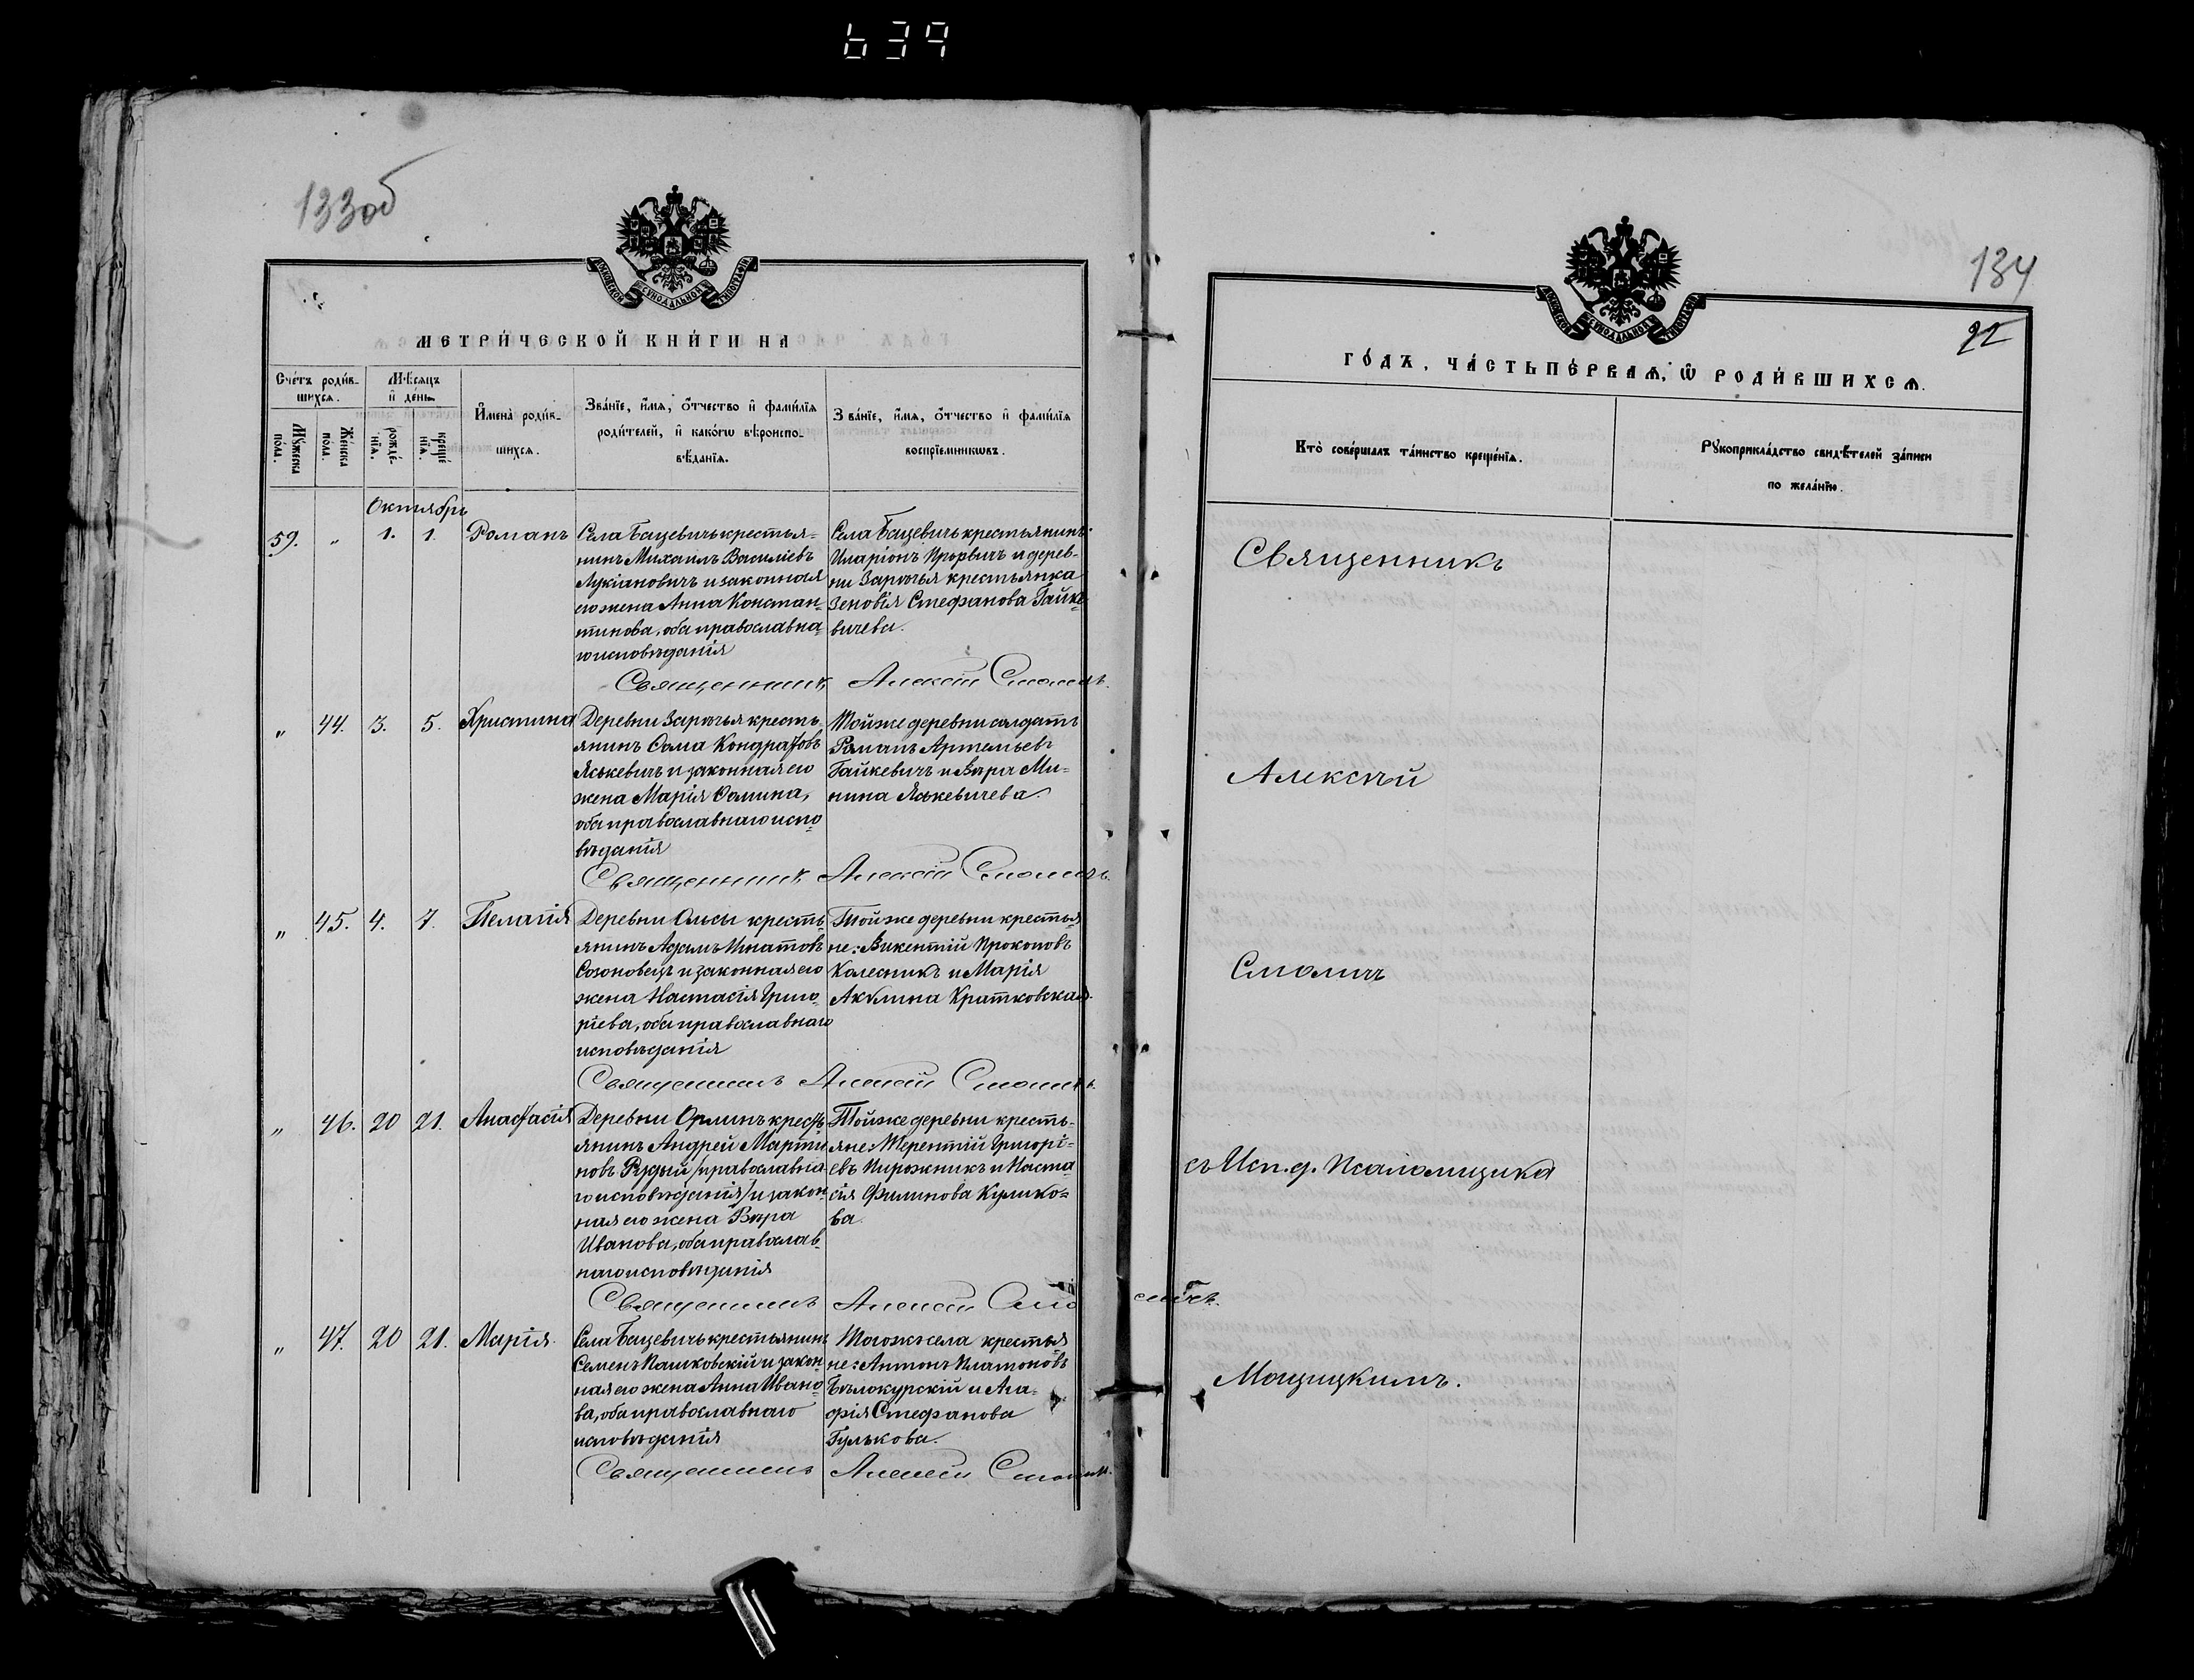 639
133об
МОСКОВСКОЙ СѴНОДАЛЬНОЙ ТИПОГРАФІИ
МЕТРИ́ЧЕСКОЙ КНИ́ГИ НА
Сче́тъ роди́в-
шихсѧ.
Мѣ́сѧцъ
и҆ де́нь.
Мꙋ́жеска
по́ла.
Же́нска
по́ла.
рожде́-
нїѧ.
креще́
нїѧ.
И҆мена̀ роди́в-
шихсѧ.
Зва́нїе, и҆́мѧ, ѻ҆́тчество и҆ фами́лїѧ
роди́телей, и҆ како́гѡ вѣроиспо-
вѣ́данїѧ.
Зва́нїе, и҆́мѧ, ѻ҆́тчество и҆ фами́лїѧ
воспрїе́мникѡвъ.
Октябрь
59. „ 1. 1. Романъ
Села Бацевичъ крестья-
нинъ Михаилъ Василіевъ
Лукіановичъ и законная
его жена Анна Констан-
тинова, оба православна-
го исповѣданія
Села Бацевичъ крестьянинъ
Иларіонъ Прорвичъ и дерев-
ни Зарѣчья крестьянка
Зеновія Стефанова Гайке-
вичева.
Священникъ Алексѣй Смоличъ.
„ 44. 3. 5. Христина
Деревни Зарѣчья кресть-
янинъ Ѳома Кондратовъ
Яськевичъ и законная его
жена Марія Ѳомина,
оба православнаго испо-
вѣданія
Той же деревни солдатъ
Романъ Артемьевъ
Гайкевичъ и Вѣра Ми-
нина Яськевичева.
Священникъ Алексѣй Смоличъ.
„ 45. 4. 7. Пелагія
Деревни Ольсы кресть-
янинъ Адамъ Игнатовъ
Созоновецъ и законная его
жена Настасія Григо-
ріева, оба православнаго
исповѣданія
Той же деревни крестья-
не: Викентій Прокоповъ
Колесникъ и Марія
Акулина Кратковская.
Священникъ Алексѣй Смоличъ.
„ 46. 20 21. Анастасія
Деревни Орлинъ кресть-
янинъ Андрей Марти-
новъ Рудый /православна-
го исповѣданія/ и закон-
ная его жена Вѣра
Иванова, оба православ-
наго исповѣданія
Той же деревни кресть-
яне: Терентій Григорі-
евъ Пирожникъ и Наста-
сія Филипова Кулико-
ва.
Священникъ Алексѣй Смоличъ.
„ 47. 20 21. Марія.
Села Бацевичъ крестьянинъ
Семенъ Пашковскій и закон-
ная его жена Анна Ивано-
ва, оба православнаго
исповѣданія
Того же села крестья-
не: Антонъ Платоновъ
Бѣлокурскій и Ага-
фія Стефанова
Гулькова.
Священникъ Алексѣй Смоличъ.
134
22
МОСКОВСКОЙ СѴНОДАЛЬНОЙ ТИПОГРАФІИ
ГО́ДЪ, ЧА́СТЬ ПЕ́РВАѦ, Ѽ РОДИ́ВШИХСѦ.
Кто̀ соверша́лъ та́инство креще́нїѧ.
Рꙋкоприкла́дство свидѣ́телей за́писи
по жела́нїю.
Священникъ
Алексѣй
Смоличъ
съ Исп. д. Псаломщика
Мощицкимъ.